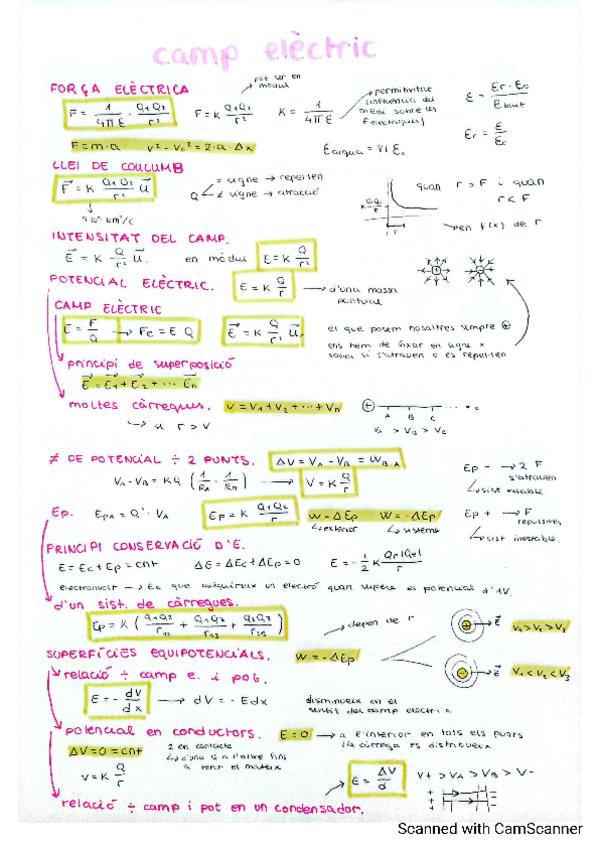 camp elèctric
FORÇA ELÈCTRICA
pot ser en mòdul
F = 1/4πε · Q₁Q₂/r²
F = K Q₁Q₂/r²
K = 1/4πε
permitivitat
ε = εr · ε₀
εr = ε/ε₀
F = m·a v² - v₀² = 2·a·Δx
εaigua = 81 ε₀
LLEI DE COULUMB
F = K Q₁Q₂/r² u
= signe → repel·len
≠ signe → atracció
quan r > F i quan
r < F
9·10⁹ Nm²/C
en f(x) de r
INTENSITAT DEL CAMP.
E = K Q/r² u. en mòdul E = K Q/r²
POTENCIAL ELÈCTRIC. E = K Q/r → d'una massa
puntual
CAMP ELÈCTRIC
E = F/Q → Fe = E Q E = K Q/r² u.
el que posem nosaltres sempre +
ens hem de fixar en signe x
saber si s'atrauen o es repel·len
principi de superposició
E = E₁ + E₂ + ... En
moltes càrregues. V = V₁ + V₂ + ... + Vn
A B C
VA > VB > VC
r > V
≠ DE POTENCIAL ÷ 2 PUNTS. ΔV = VA - VB = WB-A
V = K Q/r
Ep - → 2 F
s'atrauen
sist estable
Ep. EpA = Q' · VA Ep = K Q₁Q₂/r W = ΔEp W = -ΔEp
exterior sistema
Ep + → F
repulsives
sist inestable.
PRINCIPI CONSERVACIÓ D'E.
E = Ec + Ep = cnt ΔE = ΔEc + ΔEp = 0
electronvolt → Ec que adquireix un electró quan supera el potencial d'1V.
d'un sist. de càrregues.
Ep = K ( Q₁Q₂/r₁₂ + Q₁Q₃/r₁₃ + Q₂Q₃/r₂₃ )
depèn de r
E V₁ > V₂ > V₃
SUPERFÍCIES EQUIPOTENCIALS. W = -ΔEp
E V₁ < V₂ < V₃
relació ÷ camp e. i pot.
E = - dV/dx → dV = -Edx
disminueix en el
sentit del camp elèctric
potencial en conductors. E = 0 → a l'interior en tots els punts
la càrrega es distribueix
ΔV = 0 = cnt
2 en contacte
d'una a l'altre fins
a tenir el mateix
V = K Q/r
E = ΔV/d
V+ > VA > VB > V-
relació ÷ camp i pot en un condensador.
Scanned with CamScanner